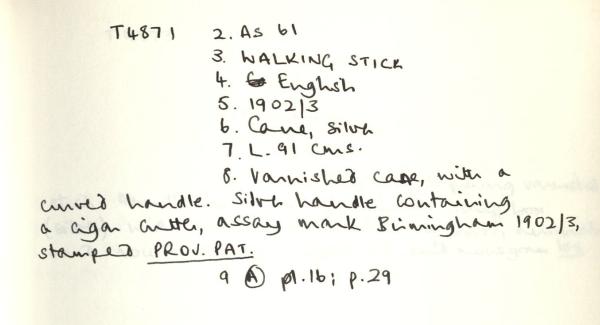 T4871 2. As 61
3. WALKING STICK
4. English
5. 1902/3
6. Cane, silver
7. L. 91 cms.
8. Varnished cane, with a
curved handle. Silver handle containing
a cigar cutter, assay mark Birmingham 1902/3,
stamped PROV. PAT.
9 (A) pl.16; p.29